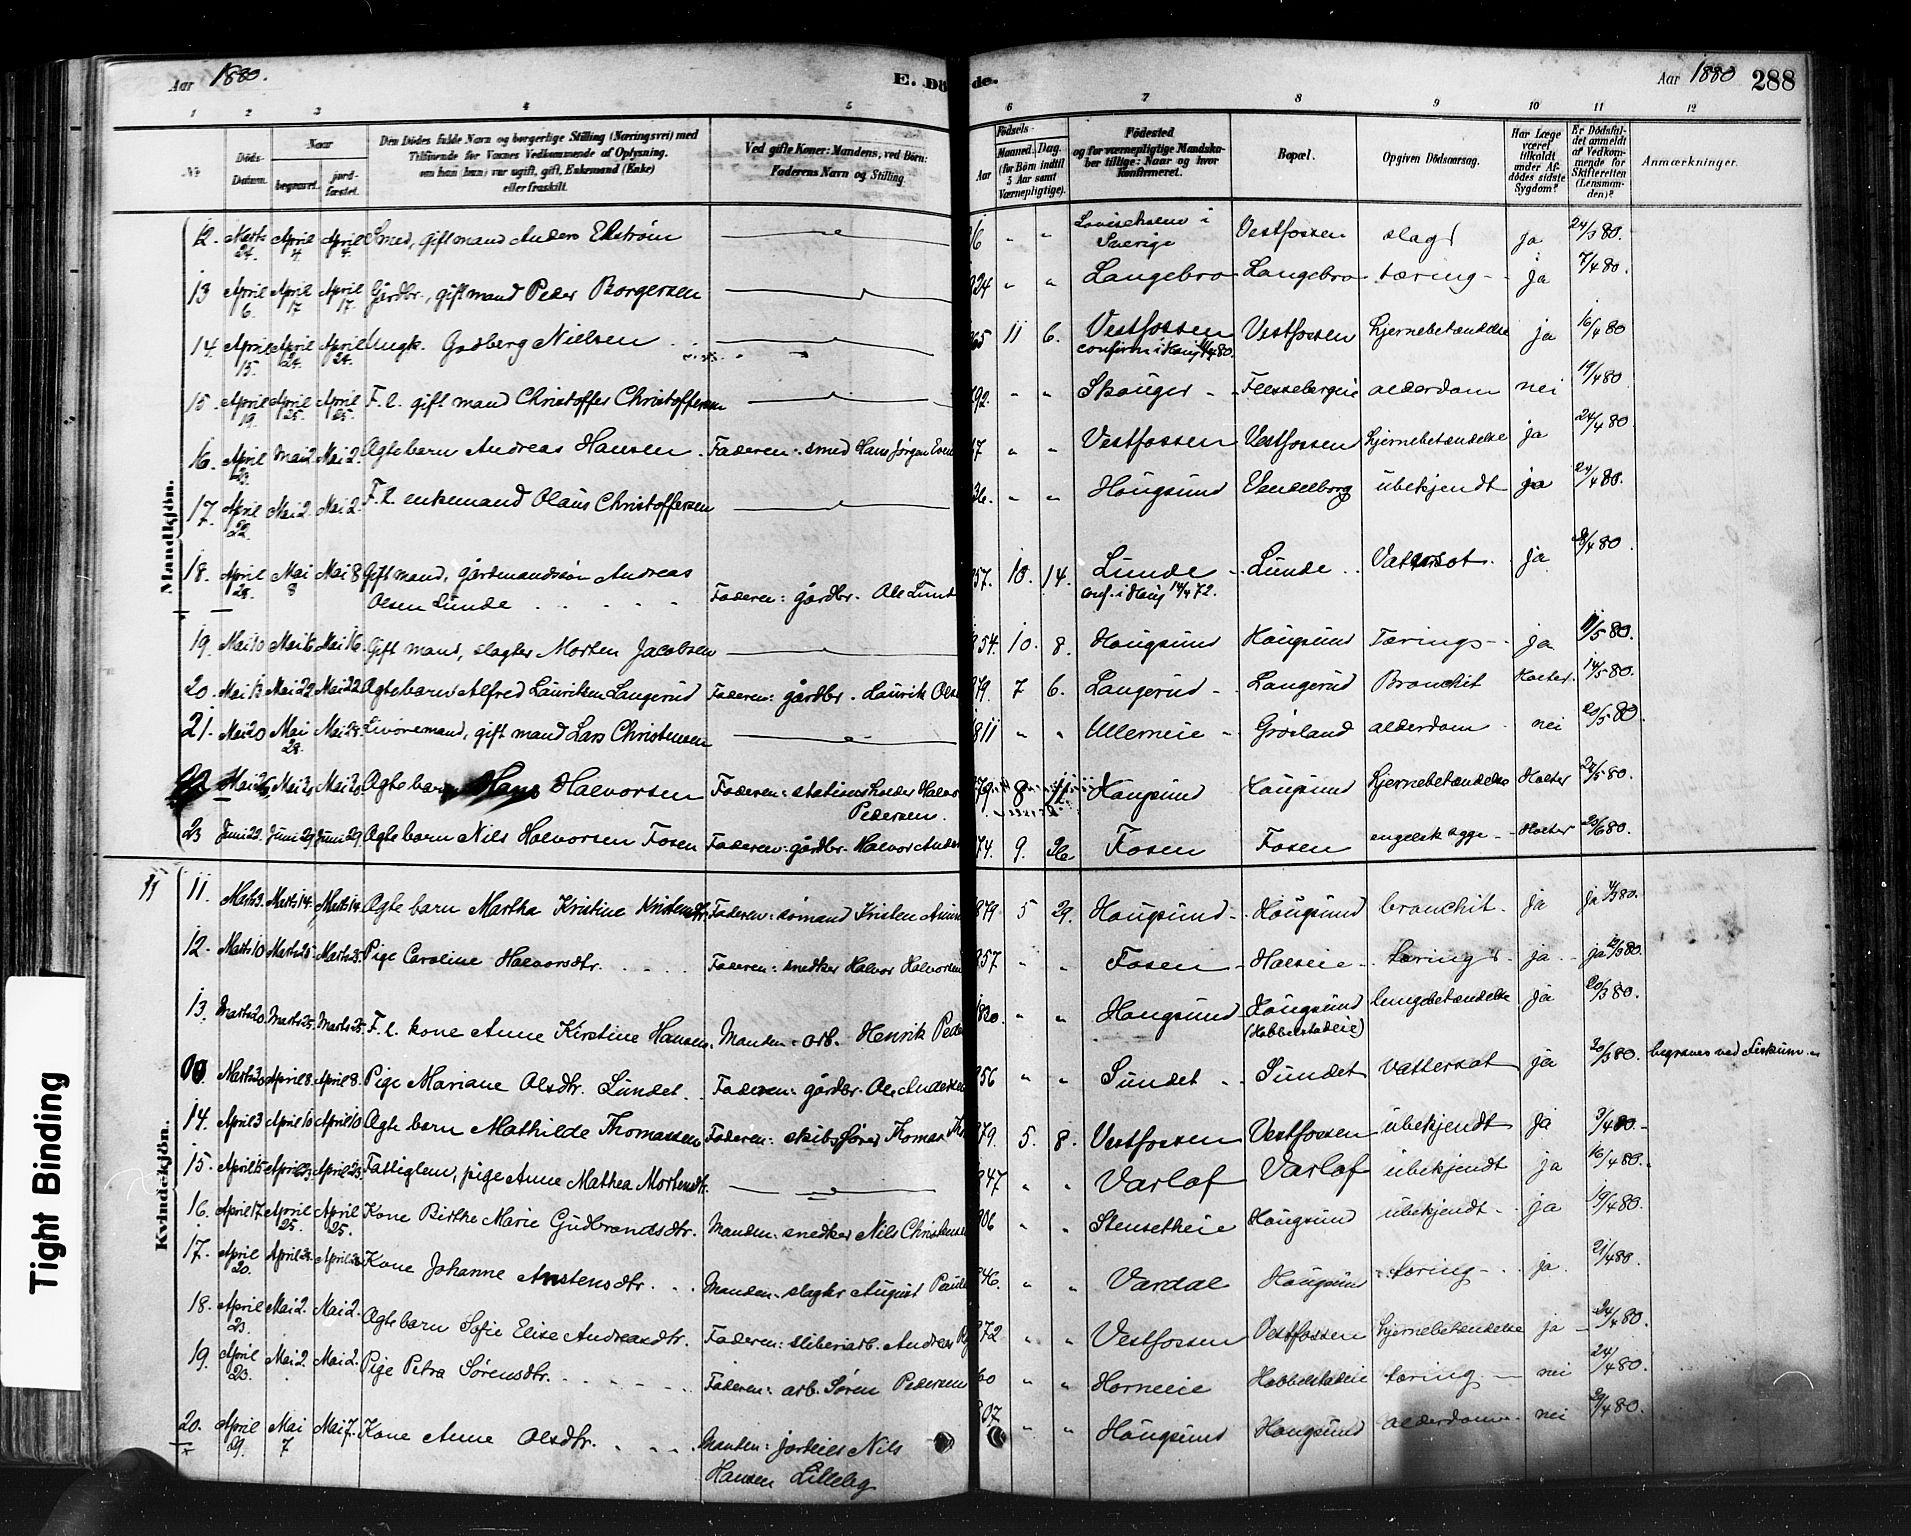 Aar 1880.
E. Dö
de.
Aar 1880
288
1 2 3 4 5 6 7 8 9 10 11 12
No
Döds-Datum.
Naar
begravet.
jord-fæstet.
Den Dödes fulde Navn og borgerlige Stilling (Næringsvei) med
Tilföiende for Voxnes Vedkommende af Oplysning,
om han (hun) var ugift, gift, Enkemand (Enke)
eller fraskilt.
Ved gifte Koner: Mandens, ved Börn:
Faderens Navn og Stilling.
Födsels-
Aar
Maaned. Dag.
(for Börn indtil
5 Aar samt
Værnepligtige).
Födested
og for værnepligtige Mandska-
ber tillige: Naar og hvor
konfirmeret.
Bopæl.
Opgiven Dödsaarsag.
Har Læge
været
tilkaldt
under Af-
dödes sidste
Sygdom?
Er Dödsfal-
det anmeldt
af Vedkom-
mende for
Skifteretten
(Lensman-
den)?
Anmærkninger.
Mandkjön.
12. Marts 24. April 4 April 4. Smed, Gift mand Anders Ekström 6 " " i Sverige Vestfossen slag ja 24/3 80.
13 April 6. April 17 April 17. Gårdbr., gift mand Peder Borgersen 824 " " Langebro Langebro tæring - ja 7/4 80.
14. April 15. April 24. April 24. Ungk. Gudberg Nielsen 865 11 6. Vestfossen Vestfossen hjernebetændelse ja 16/4 80
confirm. i Haug 11/4 80.
15. April 19. April 25. April 25. F. l. gift mand Christoffer Christoffersen 792. " " Skouger - alderdom nei 19/4 80
16. April 23. Mai 2 Mai 2. Ægtebarn Andreas Hansen. Faderen: smed Hans Jörgen " " Vestfossen Vestfossen hjernebetændelse ja 24/4 80.
17. April 22. Mai 2. Mai 2. F. l. enkemand Olaus Christoffersen 36. " " Hougsund ubekjendt ja 24/4 80.
18. April 28. Mai 8 Mai 8 Gift mand, gårdmandssön Andreas
Olsen Lunde Faderen: gårdbr. Ole Lund 857. 10. 14. Lunde - Lunde Vattersot ja 28/4 80.
conf. i Haug 14/4 72.
19. Mai 10 Mai 16 Mai 16. Gift mand, slagter Morten Jacobsen 854. 10. 8. Hougsund Hougsund Tærings - ja 11/5 80.
20. Mai 13 Mai 22 Mai 22 Ægtebarn Alfred Lauriksen Langerud Faderen: gårdbr. Laurik Ols 879. 7 6. Langerud - Langerud Bronchit Holter. 14/5 80.
21. Mai 20 Mai 28. Mai 28. Livöremand, gift mand Lars Christensen 1811 " " Ullerneie " Grosland alderdom nei 20/5 80.
22 Mai 26 Mai 30 Mai 30 Ægtebarn Hans Halvorsen Faderen: stationsholder Halvor
Pedersen. 879. 8 Hougsund Hougsund hjernebetændelse Holter 28/5 80.
23 Juni 22. Juni 29 Juni 29. Ægtebarn Nils Halvorsen Fosen Faderen: gårdbr. Halvor Ander 74. 9. 26. Fosen Fosen engelsk sygge - Holter 23/6 80.
Kvindekjön.
11. Marts 3. Marts 14. Marts 14. Ægtebarn Martha Kristine Kristensdtr. Faderen: sömand Kristen 879 5 29. Hougsund - Hougsund bronchit. ja ja 4/3 80.
12. Marts 10 Marts 25. Marts 25. Pige Caroline Halvorsdtr. Faderen: snedker Halvor Halvorsen 857. " " Fosen Holseie - tæring ja ja /3 80.
13. Marts 20. Marts 25. Marts 25. F. l. kone Anne Kirstine Hansen. Manden: arb. Henrik Ped 1820. " " Hougsund Hougsund lungebetændelse ja 20/3 80.
(Habbelstadeie)
00. Marts 30 April 8. April 8. Pige Mariane Olsdtr. Sundet. Faderen: gårdbr. Ole Anders 856 " " Sundet Sundet vattersot ja 30/3 80. begraves ved Fiskum
14. April 3 April 10 April 10 Ægtebarn Mathilde Thomassen Faderen: skibsförer Thomas 879. 5. 8. Vestfossen Vestfossen ubekjendt ja 3/4 80.
15. April 15 April 23. April 23. Fattiglem, pige Anne Mathea Mortensdtr. 847 " " Varlof Varlof ubekjendt ja 16/4 80.
16. April 17 April 25. April 25. Kone Birthe Marie Gudbrandsdtr. Manden: snedker Nils Christens 806 " " Stensetheie Hougsund ubekjendt - ja 19/4 80.
17. April 20. Kone Johanne Anstensdtr. Manden: slagter August Paul 846. " " Vardal Hougsund tæring - ja. 21/4 80.
18. April 23. Mai 2. Mai 2. Ægtebarn Sofie Elise Andreasdtr. Faderen: sliberiarb. Andreas 872 " " Vestfossen Vestfossen hjernebetændelse ja - 24/4 80.
19. April 23. Mai 2. Mai 2. Pige Petra Sörensdtr. Faderen: arb. Sören Pedersen 60 " " Horneeie Habbelstadeie tæring - nei 24/4 80.
20. April 29. Mai 7 Mai 7. Kone Anne Olsdtr. Manden: jordeier Nils
Hansen Lilleby 807 " " Hougsund Hougsund alderdom nei 29/4 80.
Tight Binding